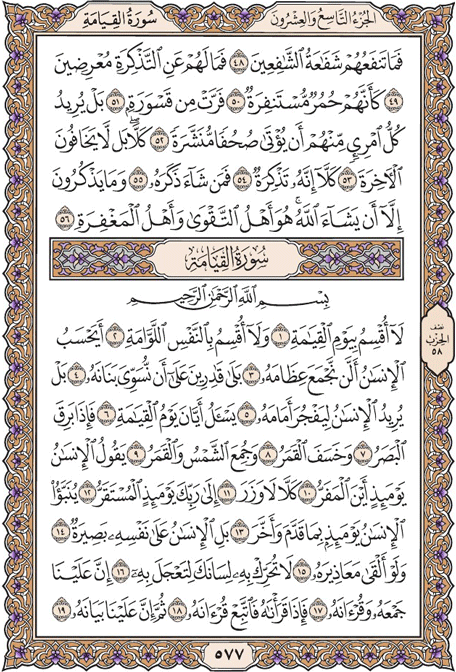 الجُزْءُ التَّاسِعُ وَالعِشْرُونَ سُورَةُ القِيَامَةِ
فَمَا تَنفَعُهُمْ شَفَٰعَةُ ٱلشَّٰفِعِينَ ٤٨ فَمَا لَهُمْ عَنِ ٱلتَّذْكِرَةِ مُعْرِضِينَ
٤٩ كَأَنَّهُمْ حُمُرٌ مُّسْتَنفِرَةٌ ٥٠ فَرَّتْ مِن قَسْوَرَةٍۭ ٥١ بَلْ يُرِيدُ
كُلُّ ٱمْرِئٍ مِّنْهُمْ أَن يُؤْتَىٰ صُحُفًا مُّنَشَّرَةً ٥٢ كَلَّاۖ بَل لَّا يَخَافُونَ
ٱلْءَاخِرَةَ ٥٣ كَلَّآ إِنَّهُۥ تَذْكِرَةٌ ٥٤ فَمَن شَآءَ ذَكَرَهُۥ ٥٥ وَمَا يَذْكُرُونَ
إِلَّآ أَن يَشَآءَ ٱللَّهُۚ هُوَ أَهْلُ ٱلتَّقْوَىٰ وَأَهْلُ ٱلْمَغْفِرَةِ ٥٦
سُورَةُ القِيَامَةِ
بِسْمِ ٱللَّهِ ٱلرَّحْمَٰنِ ٱلرَّحِيمِ
لَآ أُقْسِمُ بِيَوْمِ ٱلْقِيَٰمَةِ ١ وَلَآ أُقْسِمُ بِٱلنَّفْسِ ٱللَّوَّامَةِ ٢ أَيَحْسَبُ
ٱلْإِنسَٰنُ أَلَّن نَّجْمَعَ عِظَامَهُۥ ٣ بَلَىٰ قَٰدِرِينَ عَلَىٰٓ أَن نُّسَوِّىَ بَنَانَهُۥ ٤ بَلْ
يُرِيدُ ٱلْإِنسَٰنُ لِيَفْجُرَ أَمَامَهُۥ ٥ يَسْـَٔلُ أَيَّانَ يَوْمُ ٱلْقِيَٰمَةِ ٦ فَإِذَا بَرِقَ
ٱلْبَصَرُ ٧ وَخَسَفَ ٱلْقَمَرُ ٨ وَجُمِعَ ٱلشَّمْسُ وَٱلْقَمَرُ ٩ يَقُولُ ٱلْإِنسَٰنُ
يَوْمَئِذٍ أَيْنَ ٱلْمَفَرُّ ١٠ كَلَّا لَا وَزَرَ ١١ إِلَىٰ رَبِّكَ يَوْمَئِذٍ ٱلْمُسْتَقَرُّ ١٢ يُنَبَّؤُا۟
ٱلْإِنسَٰنُ يَوْمَئِذٍۭ بِمَا قَدَّمَ وَأَخَّرَ ١٣ بَلِ ٱلْإِنسَٰنُ عَلَىٰ نَفْسِهِۦ بَصِيرَةٌ ١٤
وَلَوْ أَلْقَىٰ مَعَاذِيرَهُۥ ١٥ لَا تُحَرِّكْ بِهِۦ لِسَانَكَ لِتَعْجَلَ بِهِۦٓ ١٦ إِنَّ عَلَيْنَا
جَمْعَهُۥ وَقُرْءَانَهُۥ ١٧ فَإِذَا قَرَأْنَٰهُ فَٱتَّبِعْ قُرْءَانَهُۥ ١٨ ثُمَّ إِنَّ عَلَيْنَا بَيَانَهُۥ ١٩
نصف
الحِزْب
٥٨
٥٧٧